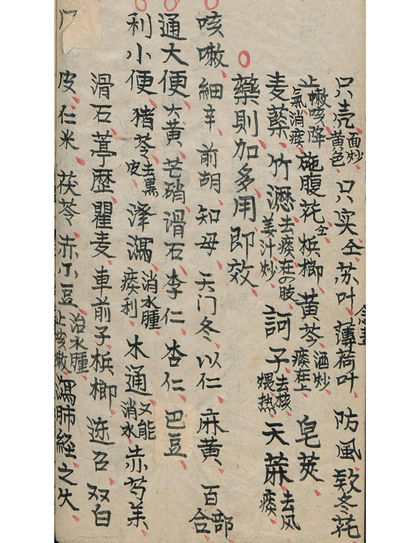 只壳面炒黄色只实仝苏叶薄荷叶防風款冬花
止嗽咳降氣消痰施腹花仝梹榔黄芩酒炒痰在上皂荚
麦蘗竹瀝去痰在四肢姜汁炒訶子去核煨热天蔴去风痰
藥則加多用即效
咳嗽細辛前胡知母天门冬以仁麻黄百部合
通大便大黄芒硝滑石李仁杏仁巴豆
利小便猪苓去黑皮泽瀉消水腫痰利木通又能消水赤芍
滑石葶歷瞿麦車前子梹榔连召双白
皮仁米茯苓赤小豆治水腫止咳嗽瀉肺經之火